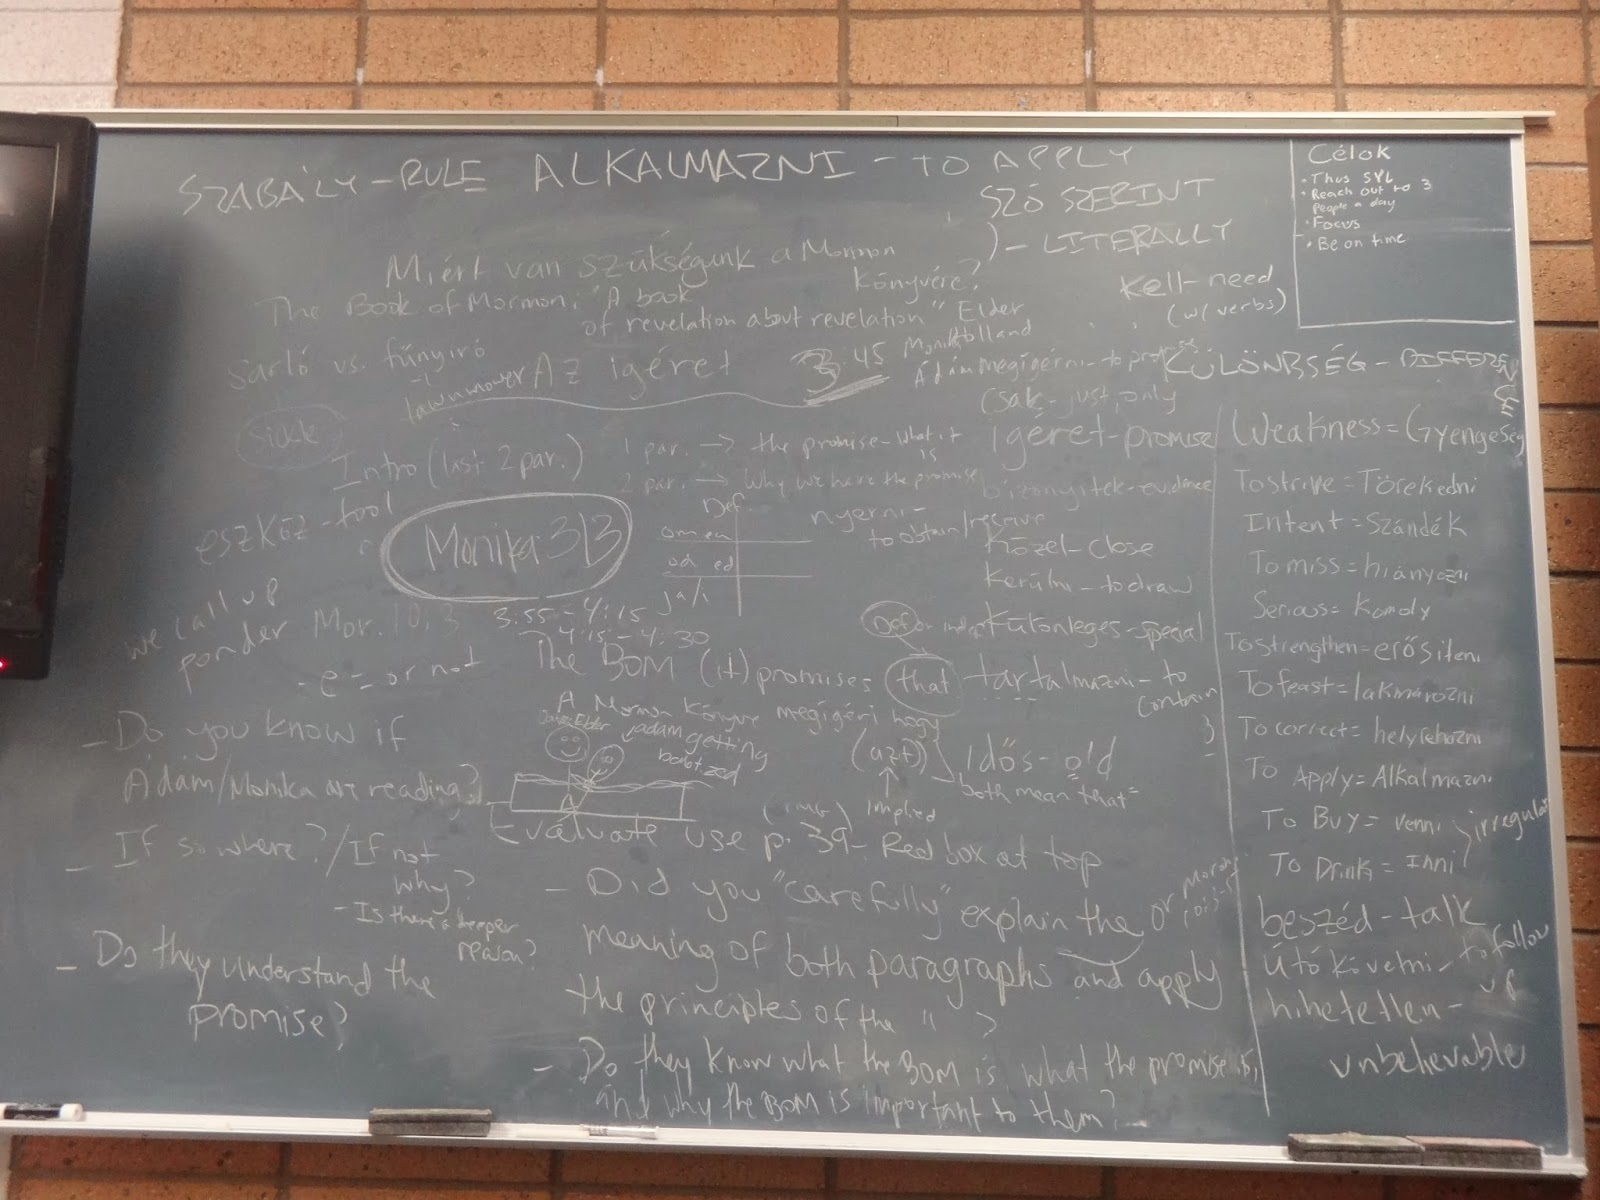 SZABÁLY - RULE
ALKALMAZNI - TO APPLY
SZÓ SZERINT
- LITERALLY
Célok
• Thus SYL
• Reach out to 3
people a day
• Focus
• Be on time
Miért van szükségünk a Mormon
könyvére?
Kell - need
(w/ verbs)
The Book of Mormon: "A book
of revelation about revelation" Elder
Holland
Sarló vs. fűnyíró
lawnmower
Sickle
Az igéret
3:45
Monika
Ádám
megígérni - to promise
KÜLÖNBSÉG - DIFFERENCE
csak - just, only
igéret - promise
Intro (last 2 par.)
1 par. → the promise - what it
is
2 par. → Why we have the promise
bizonyíték - evidence
eszköz - tool
Monika 313
Def.
om em
od ed
ja/i
nyerni -
to obtain/receive
közel - close
kerülni - to draw
különleges - special
tartalmazni - to
contain
we call up
ponder Mor. 10:3
3:55 - 4:15
4:15 - 4:30
- e = or not
The BOM (it) promises that
A Mormon könyve megígéri hogy
(azt)
implied
Idős - old
both mean that
Elder
adam getting
baptized
- Do you know if
Ádám/Monika are reading?
- If so where?/If not
why?
- Is there a deeper
reason?
- Do they understand the
promise?
Evaluate use p. 39 - Red box at top
- Did you "carefully" explain the
meaning of both paragraphs and apply
the principles of the " ?
or Moroni
10:3-5
- Do they know what the BOM is, what the promise is,
and why the BOM is important to them?
Weakness = Gyengeség
To strive = Törekedni
Intent = Szándék
To miss = hiányozni
Serious = Komoly
To strengthen = erősíteni
To feast = lakmározni
To correct = helyrehozni
To Apply = Alkalmazni
To Buy = venni
To Drink = Inni
irregular
beszéd - talk
Útó követni - to follow
up
hihetetlen -
unbelievable